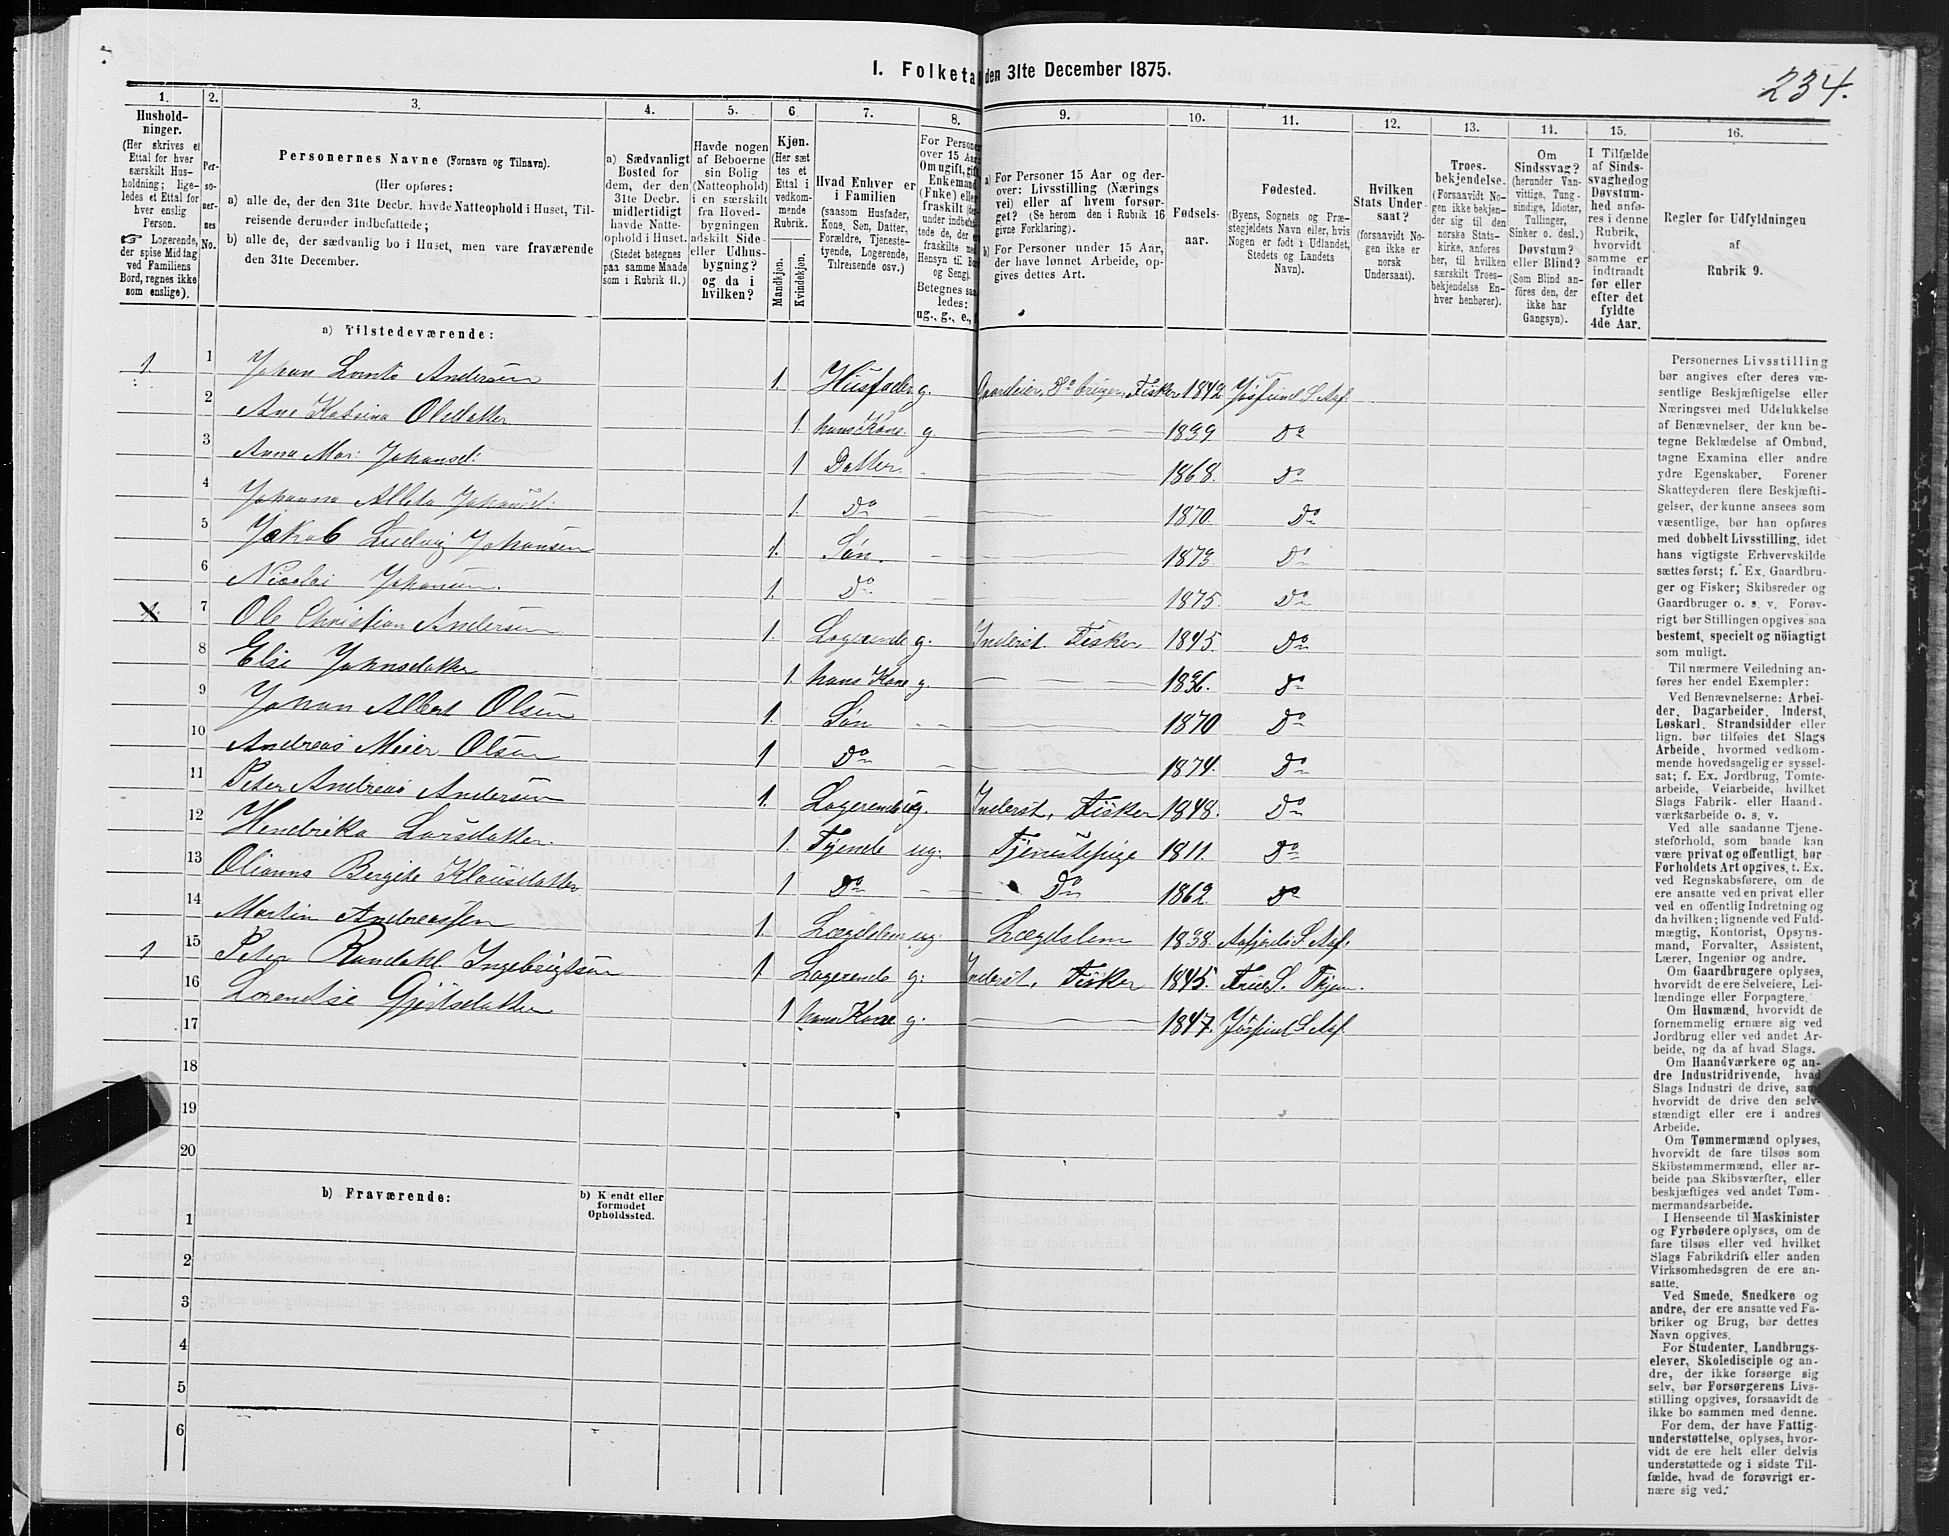 I. Folketal den 31te December 1875.
234.
1. 2. 3. 4. 5. 6. 7. 8. 9. 10. 11. 12. 13. 14. 15. 16.
Hushold-
ninger.
(Her skrives et
Ettal for hver
særskilt Hus-
holdning; lige-
ledes et Ettal for
hver enslig
Person.
☞ Logerende,
der spise Middag
ved Familiens
Bord, regnes ikke
som enslige).
Per-
so-
ner-
nes
No.
Personernes Navne (Fornavn og Tilnavn).
(Her opføres:
a) alle de, der den 31te Decbr. havde Natteophold i Huset, Til-
reisende derunder indbefattede;
b) alle de, der sædvanlig bo i Huset, men vare fraværende
den 31te December.
a) Sædvanligt
Bosted for
dem, der den
31te Decbr.
midlertidigt
havde Natte-
ophold i Huset.
(Stedet betegnes
paa samme Maade
som i Rubrik 11.)
Havde nogen
af Beboerne
sin Bolig
(Natteophold)
i en særskilt
fra Hoved-
bygningen
adskilt Side-
eller Udhus-
bygning?
og da i
hvilken?
Kjøn.
(Her sæt-
tes et
Ettal i
vedkom-
mende
Rubrik.
Mandkjøn.
Kvindekjøn.
Hvad Enhver er
i Familien
(saasom Husfader,
Kone, Søn, Datter,
Forældre, Tjeneste-
tyende, Logerende,
Tilreisende osv.)
For Personer
over 15 Aar:
Om ugift, gift,
Enkemand
(Enke) eller
fraskilt
Betegnes saa-
ledes:
ug., g., e.,
a) For Personer 15 Aar og der-
over: Livsstilling (Nærings
vei) eller af hvem forsør-
get? (Se herom den i Rubrik 16
givne Forklaring).
b) For Personer under 15 Aar,
der have lønnet Arbeide, op-
gives dettes Art.
Fødsels-
aar.
Fødested.
(Byens, Sognets og Præ-
stegjeldets Navn eller, hvis
Nogen er født i Udlandet,
Stedets og Landets
Navn).
Hvilken
Stats Under-
saat?
(forsaavidt No-
gen ikke er
norsk
Undersaat).
Troes-
bekjendelse.
(Forsaavidt No-
gen ikke bekjen-
der sig til den
norske Stats-
kirke, anføres
her, til hvilken
særskilt Troes-
bekjendelse En-
hver henhører).
Om
Sindssvag?
(herunder Van-
vittige, Tung-
sindige, Idioter,
Tullinger,
Sinker o. desl.)
Døvstum?
eller Blind?
(Som Blind an-
føres den, der
ikke har
Gangsyn).
I Tilfælde
af Sinds-
svaghed og
Døvstum-
hed anfø-
res i denne
Rubrik,
hvorvidt
samme er
indtraadt
før eller
efter det
fyldte
4de Aar.
Regler for Udfyldningen
af
Rubrik 9.
a) Tilstedeværende:
1 1 Johan Andersen 1. Husfader g. Gaardeier, Do bruger, Fisker 1842 Jøsfund S. Aaf.
2 Ane Katrina Olsdatter 1. hans Kone g. 1839 Do
3 Anna Mar: Johansd: 1 Datter 1868. Do
4 Johanna Johansd. 1. Do 1870. Do
5 Jakob Ludvig Johansen 1. Søn. 1873 Do
6 Nicolai Johansen. 1. Do 1875. Do
7 Ole Christian Andersen 1. Logerende g. Inderst. Fisker 1845. Do
8 Else Johnsdatter 1. hans Kone g. 1836. Do
9 Johan Albert Olsen 1. Søn 1870 Do
10 Andreas Meier Olsen 1. Do 1874. Do
11 Peter Andreas Andersen 1. Logerende ug. Inderst, Fisker 1848. Do
12 Hendrika Larsdatter. 1. Tyende ug. Tjenestepige 1811. Do
13 Olianna Bergite Klausdatter 1 Do Do 1862. Do
14 Martin Andreassen 1. Lægdslem ug. Lægdslem 1838. Aafjords S. Aaf.
1 15 Peter Randahl Ingebrigtsen 1 Logerende g. Inderst, Fisker 1845.
16 Lorentse Gjertsdatter 1 hans Kone g. 1847. Jøsfund S. Aaf.
17
18
19
20
b) Fraværende:
b) Kjendt eller
formodet
Opholdssted.
1
2
3
4
5
6
Personernes Livsstilling
bør angives efter deres væ-
sentlige Beskjæftigelse eller
Næringsvei med Udelukkelse
af Benævnelser, der kun be-
tegne Beklædelse af Ombud,
tagne Examina eller andre
ydre Egenskaber. Forener
Skatteyderen flere Beskjæfti-
gelser, der kunne ansees som
væsentlige, bør han opføres
med dobbelt Livsstilling, idet
hans vigtigste Erhvervskilde
sættes først; f. Ex. Gaardbru-
ger og Fisker; Skibsreder og
Gaardbruger o. s. v. Forøv-
rigt bør Stillingen opgives saa
bestemt, specielt og nöiagtigt
som muligt.
Til nærmere Veiledning an-
føres her endel Exempler:
Ved Benævnelserne: Arbei-
der, Dagarbeider, Inderst,
Løskarl, Strandsidder eller
lign. bør tilføies det Slags
Arbeide, hvormed vedkom-
mende hovedsagelig er syssel-
sat; f. Ex. Jordbrug, Tomte-
arbeide, Veiarbeide, hvilket
Slags Fabrik- eller Haand-
værksarbeide o. s. v.
Ved alle saadanne Tjene-
steforhold, som baade kan
være privat og offentligt, bør
Forholdets Art opgives, t. Ex.
ved Regnskabsførere, om de
ere ansatte ved en privat eller
ved en offentlig Indretning og
da hvilken; lignende ved Fuld-
mægtig, Kontorist, Opsyns-
mand, Forvalter, Assistent,
Lærer, Ingeniør og andre.
Om Gaardbrugere opgives,
hvorvidt de ere Selveiere, Lei-
lændinge eller Forpagtere.
Om Husmænd, hvorvidt de
fornemmelig ernære sig ved
Jordbrug eller ved andet Ar-
beide, og da af hvad Slags.
Om Haandværkere og an-
dre Industridrivende, hvad
Slags Industri de drive, samt
hvorvidt de drive den selv-
stændigt eller ere i andres
Arbeide.
Om Tømmermænd oplyses,
hvorvidt de fare tilsøs som
Skibstømmermænd, eller ar-
beide paa Skibsværfter, eller
beskjæftiges ved andet Tøm-
mermandsarbeide.
I Henseende til Maskinister
og Fyrbødere oplyses, om de
fare tilsøs eller ved hvilket
Slags Fabrikdrift eller anden
Virksomhedsgren de ere an-
satte.
Ved Smede, Snedkere og
andre, der ere ansatte ved Fa-
briker og Brug, bør dettes
Navn opgives.
For Studenter, Landbrugs-
elever, Skoledisciple og an-
dre, der ikke forsørge sig
selv, bør Forsørgerens Livs-
stilling opgives, forsaavidt de
ikke bo sammen med denne.
For dem, der have Fattig-
understøttelse, oplyses, hvor-
vidt de ere helt eller delvis
understøttede og i sidste Til-
fælde, hvad de forøvrigt er-
nære sig ved.